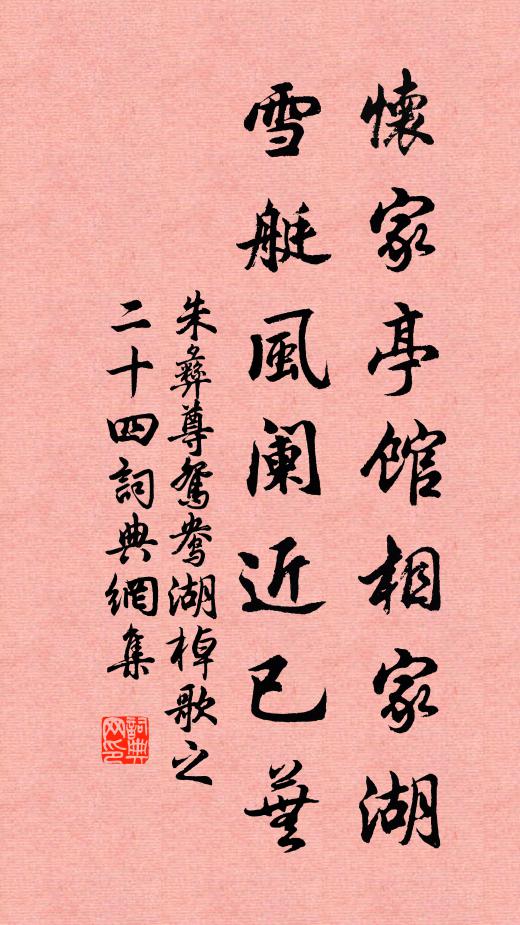 懷家亭館相家湖
雪艇風闌近已蕪
朱彞尊鴛鴦湖棹歌之
二十四詞典網集
詞典
网印